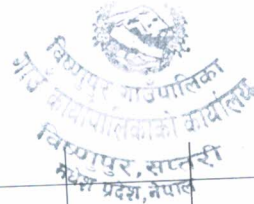 विष्णुपुर गाउँपालिका
गाउँ कार्यपालिकाको कार्यालय
विष्णुपुर, सप्तरी
मधेश प्रदेश, नेपाल